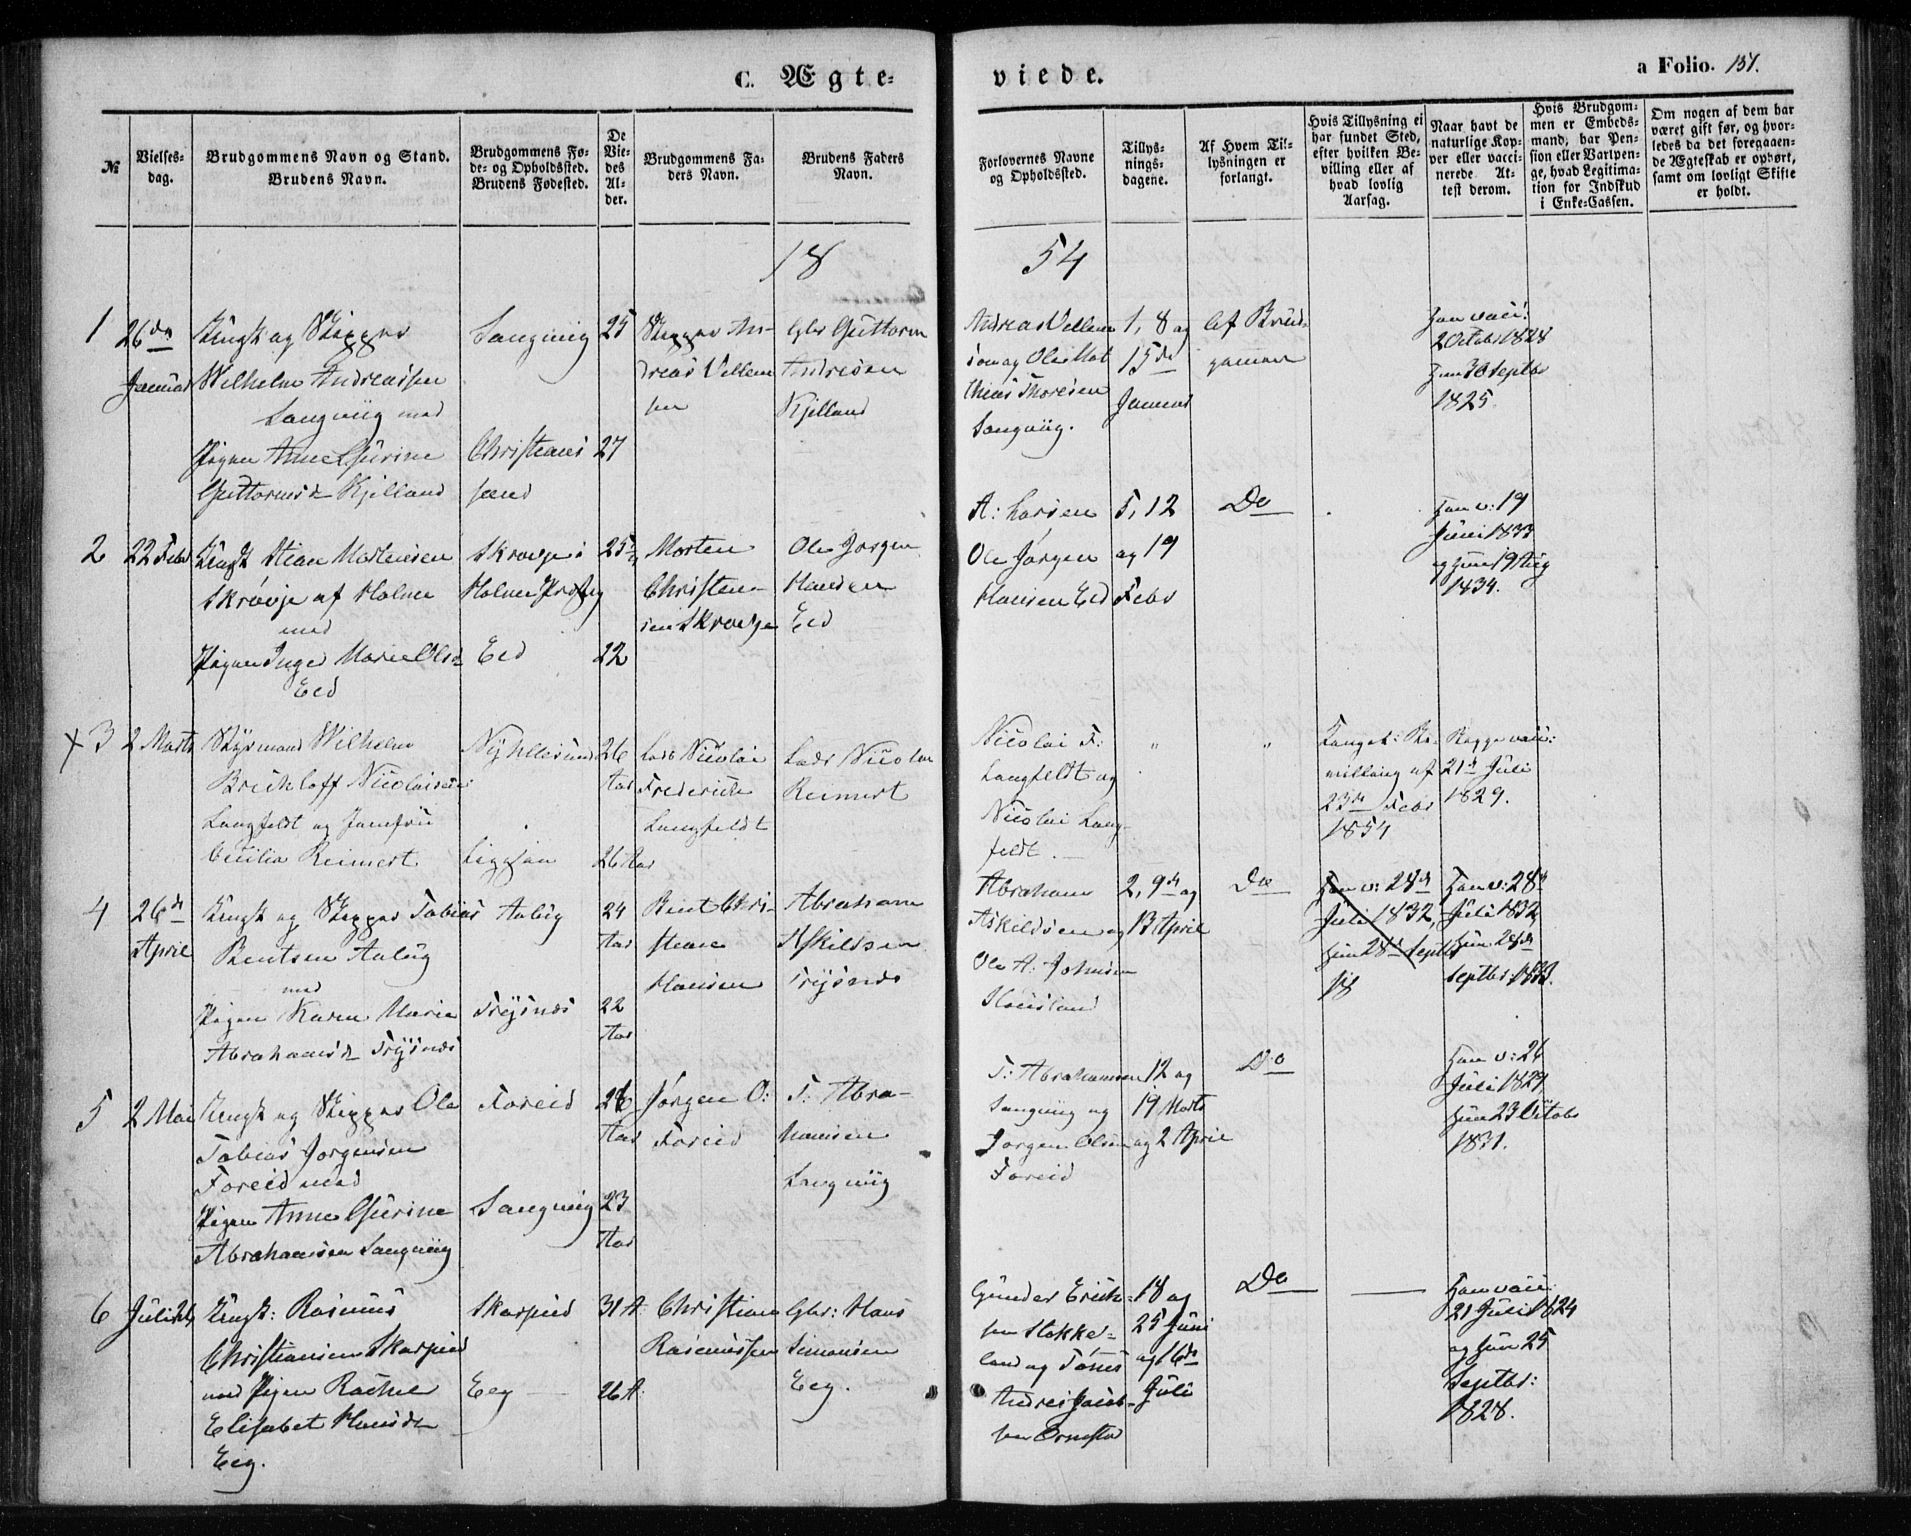 C. Ægte-
viede.
a Folio. 151.
№
Vielses-
dag.
Brudgommens Navn og Stand.
Brudens Navn.
Brudgommens Fø-
de- og Opholdssted.
Brudens Fødested.
De
Vie-
des
Al-
der.
Brudgommens Fa-
ders Navn.
Brudens Faders
Navn.
Forlovernes Navne
og Opholdssted.
Tillys-
nings-
dagene.
Af Hvem Til-
lysningen er
forlangt.
Hvis Tillysning ei
har fundet Sted,
efter hvilken Be-
villing eller af
hvad lovlig
Aarsag.
Naar havt de
naturlige Kop-
per eller vacci-
nerede At-
test derom.
Hvis Brudgom-
men er Embeds-
mand, har Pen-
sion eller Vartpen-
ge, hvad Legitima-
tion for Indskud
i Enke-Cassen.
Om nogen af dem har
været gift før, og hvor-
ledes da det foregaaen-
de Ægteskab er ophørt,
samt om lovligt Skifte
er holdt.
18
54
1
26de
Januar
Ungk og Skipper
Wilhelm Andreassen
Langviig med
Pigen Anne Gurine
Guttormsd Kjelland
Langviig
Christians
sand
25
27
Skipper An-
dreas Vellem
sen
Gbr Guttorm
Andresen
Kjelland
Andreas Vellem
sen og Ole Mat
thias Thoresen
Langviig.
1, 8 og
15de
Januar
Af Brud-
gommen
Han vacc:
2 Octobr 1828
Hun 30 Septbr
1825.
2
22 Febr
Ungk Stian Mortensen
Skrøvje af Holme
med
Pigen Inger Marie Olsd
Eed
Skrøvje i
Holme Prstg
Eed
25
22
Morten
Christen-
sen Skrøvje
Ole Jørgen
Hansen
Eed
A: Larsen
Ole Jørgen
Hansen Eed
5, 12
og 19
Febr
Do
Han v: 19
Juni 1833
og Hun 19 Aug
1834.
x 3
2 Marts
Styrmand Wilhelm
Nicolaisen
Langfeldt og Jomfru
Cecilia Reimert
Nyhellesund
26
Aar
26 Aar
Lods Nicolai
Frederich
Langfeldt
Lods Nicolai
Reimert
Nicolai F:
Langfeldt og
Nicolai Lang-
feldt.
"
"
Konget: Be-
villing af
23de Febr
1854
Begge vacc:
21de Juli
1829.
4
26de
April
Ungk og Skipper Tobias
Bentsen Aabug
med
Pigen Karen Marie
Abrahamsd Trysnes
Aabug
Trysnes
24
Aar
22
Aar
Bent Chri-
stian
Hansen
Abraham
Askildsen
Trysnes
Abraham
Askildsen og
Ole A: Johnsen
Houstand
2, 9de og
13 April
Do
Han v: 28de
Juli 1832,
Hun 28de Septbr
18
Han v: 28de
Juli 1832,
Hun 28de
Septbr: 1833.
5
2 Mai
Ungk og Skipper Ole
Tobias Jørgensen
Foreid med
Pigen Anne Gurine
Abrahamsen Langviig
Foreid
Langviig
26
Aar
23
Aar
Jørgen O:
Foreid
T: Abra-
hamsen
Langviig
T: Abrahamsen
Langviig og
Jørgen Olsen
Foreid
12 og
19 Marts
og 2 April
Do
Han v: 26
Juli 1829
Hun 23 Octobr
1831.
6
Ungk: Rasmus
Christiansen Skarpeid
med Pigen Rachel
Elisabet Hansd
Eeg.
Skarpeid
Eeg
31 A:
26 A:
Christian
Rasmussen
Gbr: Hans
Simonsen
Eeg.
Gunder Erich-
sen Stokke-
land og Tønes
Andres Jacob-
sen
18 og
25 Juni
og 16de
Juli
Do
Han vacc:
21 Juli 1824
og Hun 25
Septbr:
1828.